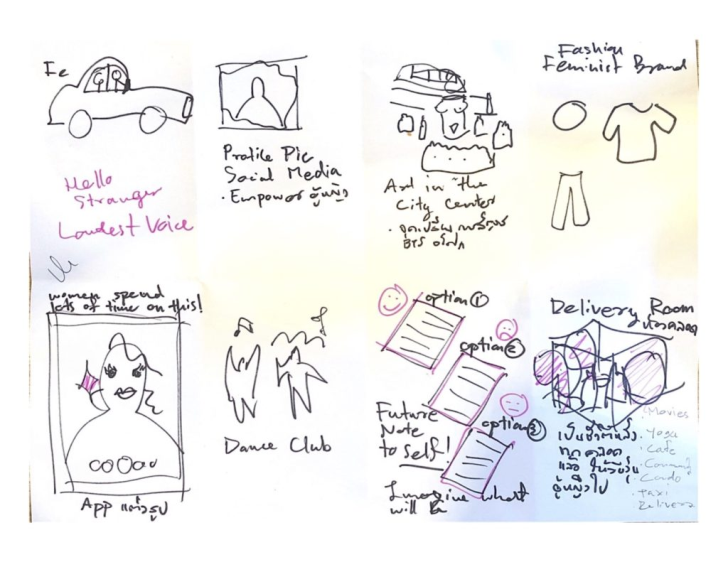 Hello
Stranger
Loudest Voice
Profile Pic
Social Media
· Empower ผู้หญิง
Art in the
City Center
BTS
Fashion
Feminist Brand
women spend
lots of time on this!
App แต่งรูป
Dance Club
option ①
option ②
option ③
Future
Note
to self!
Imagine what
will be
Delivery Room
ห้องคลอด
· Movies
· Yoga
· Cafe
· Condo
· Taxi
Delivery